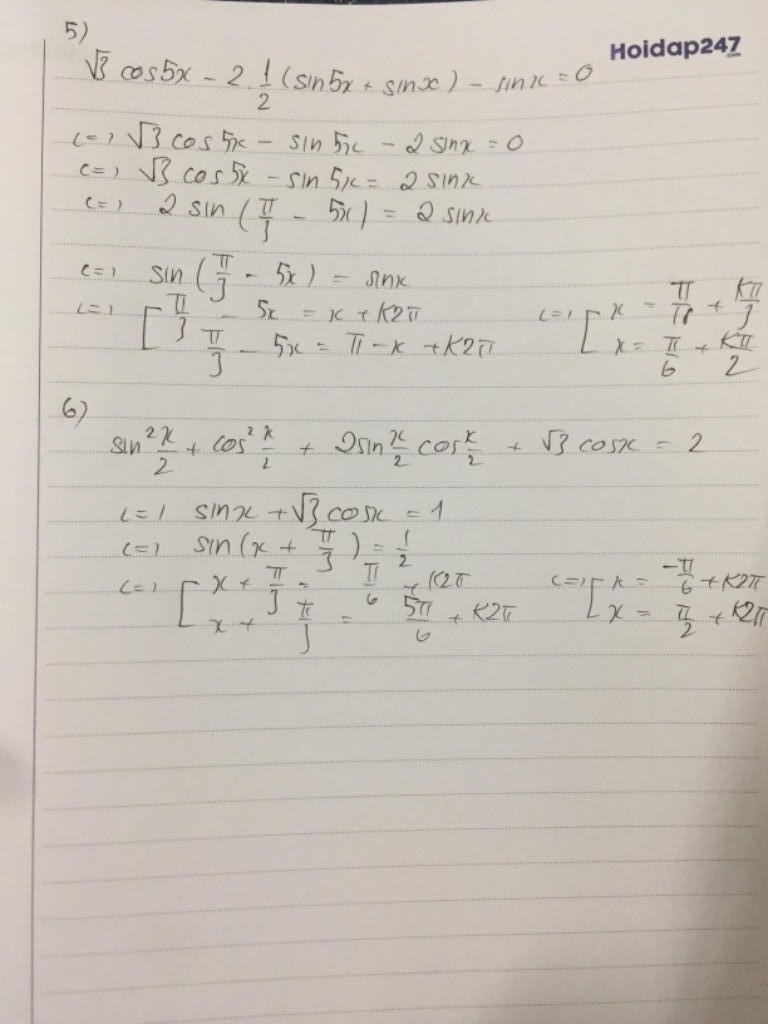 5)
Hoidap247.com
√3 cos5x - 2 . 1/2 (sin5x + sinx) - sinx = 0
<=> √3 cos5x - sin5x - 2sinx = 0
<=> √3 cos5x - sin5x = 2sinx
<=> 2sin(π/3 - 5x) = 2sinx
<=> sin(π/3 - 5x) = sinx
<=> [ π/3 - 5x = x + K2π <=> [ x = π/18 + Kπ/3
π/3 - 5x = π - x + K2π x = π/6 + Kπ/2
6)
sin²x/2 + cos²x/2 + 2sinx/2 cosx/2 + √3 cosx = 2
<=> sinx + √3 cosx = 1
<=> sin(x + π/3) = 1/2
<=> [ x + π/3 = π/6 + K2π <=> [ x = -π/6 + K2π
x + π/3 = 5π/6 + K2π x = π/2 + K2π